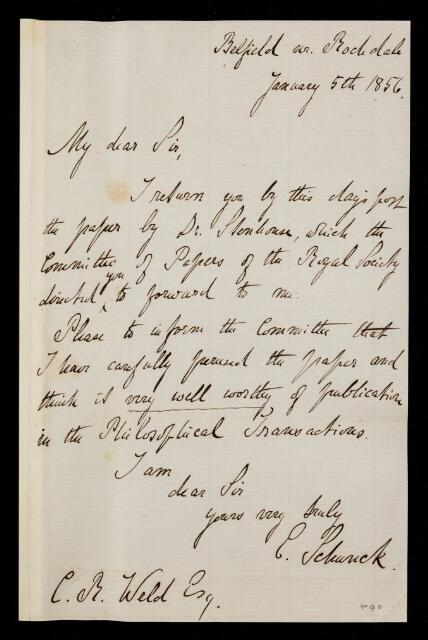 Belfield nr. Rochdale
January 5th 1856.
My dear Sir,
I return you by this day's post
the paper by Dr. Stenhouse, which the
Committee of Papers of the Royal Society
directed you to forward to me.
Please to inform the Committee that
I have carefully perused the paper and
think it very well worthy of publication
in the Philosophical Transactions.
I am
dear Sir
yours very truly
E. Schunck.
C. R. Weld Esq.